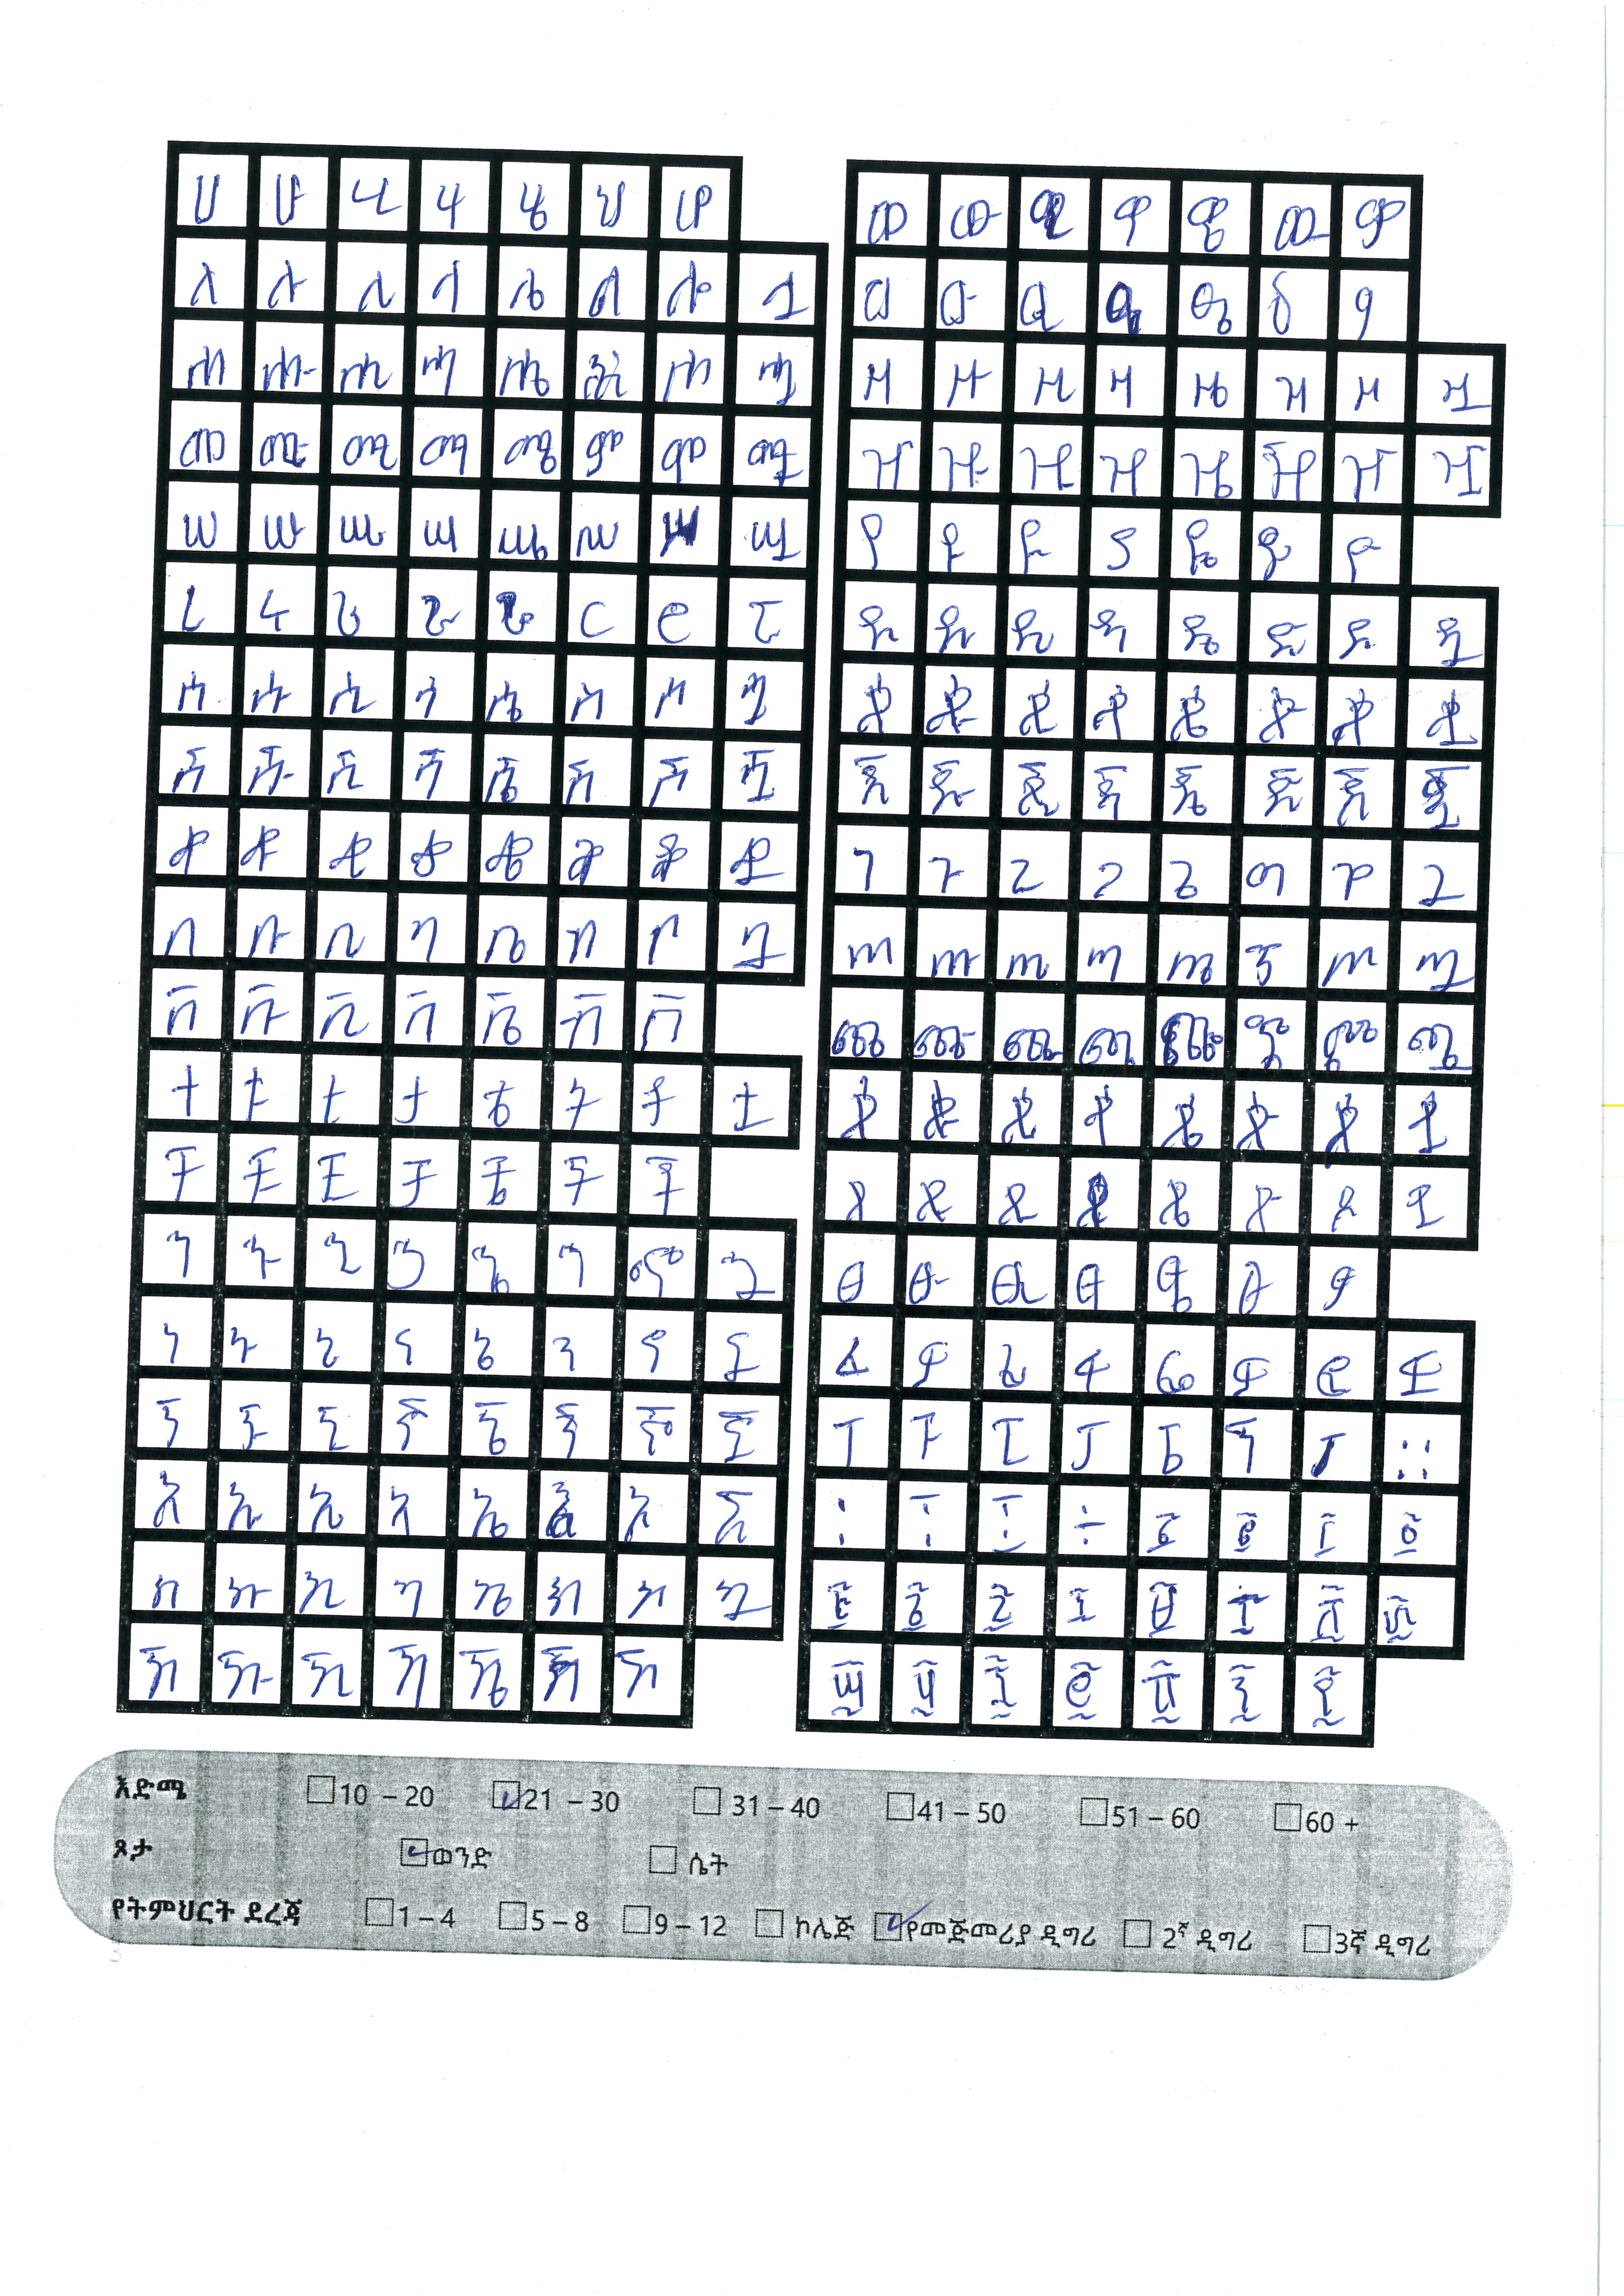 ሀ ሁ ሂ ሃ ሄ ህ ሆ
ለ ሉ ሊ ላ ሌ ል ሎ ሏ
ሐ ሑ ሒ ሓ ሔ ሕ ሖ ሗ
መ ሙ ሚ ማ ሜ ም ሞ ሟ
ሠ ሡ ሢ ሣ ሤ ሥ ሦ ሧ
ረ ሩ ሪ ራ ሬ ር ሮ ሯ
ሰ ሱ ሲ ሳ ሴ ስ ሶ ሷ
ሸ ሹ ሺ ሻ ሼ ሽ ሾ ሿ
ቀ ቁ ቂ ቃ ቄ ቅ ቆ ቋ
በ ቡ ቢ ባ ቤ ብ ቦ ቧ
ቨ ቩ ቪ ቫ ቬ ቭ ቮ
ተ ቱ ቲ ታ ቴ ት ቶ ቷ
ቸ ቹ ቺ ቻ ቼ ች ቾ
ኀ ኁ ኂ ኃ ኄ ኅ ኆ ኋ
ነ ኑ ኒ ና ኔ ን ኖ ኗ
ኘ ኙ ኚ ኛ ኜ ኝ ኞ ኟ
አ ኡ ኢ ኣ ኤ እ ኦ ኧ
ከ ኩ ኪ ካ ኬ ክ ኮ ኳ
ኸ ኹ ኺ ኻ ኼ ኽ ኾ
ወ ዉ ዊ ዋ ዌ ው ዎ
ዐ ዑ ዒ ዓ ዔ ዕ ዖ
ዘ ዙ ዚ ዛ ዜ ዝ ዞ ዟ
ዠ ዡ ዢ ዣ ዤ ዥ ዦ ዧ
የ ዩ ዪ ያ ዬ ይ ዮ
ደ ዱ ዲ ዳ ዴ ድ ዶ ዷ
ጰ ጱ ጲ ጳ ጴ ጵ ጶ ጷ
ጀ ጁ ጂ ጃ ጄ ጅ ጆ ጇ
ገ ጉ ጊ ጋ ጌ ግ ጎ ጓ
ጠ ጡ ጢ ጣ ጤ ጥ ጦ ጧ
ጨ ጩ ጪ ጫ ጬ ጭ ጮ ጯ
ጰ ጱ ጲ ጳ ጴ ጵ ጶ ጷ
ጸ ጹ ጺ ጻ ጼ ጽ ጾ ጿ
ፀ ፁ ፂ ፃ ፄ ፅ ፆ
ፈ ፉ ፊ ፋ ፌ ፍ ፎ ፏ
ፐ ፑ ፒ ፓ ፔ ፕ ፖ ።
፡ ፣ ፤ ÷ ፩ ፪ ፫ ፬
፭ ፮ ፯ ፰ ፱ ፲ ፳ ፴
፵ ፶ ፷ ፸ ፹ ፺ ፻
እድሜ 10 – 20 21 – 30 31 – 40 41 – 50 51 – 60 60 +
ጾታ ወንድ ሴት
የትምህርት ደረጃ 1 – 4 5 – 8 9 – 12 ኮሌጅ የመጅመሪያ ዲግሪ 2ኛ ዲግሪ 3ኛ ዲግሪ